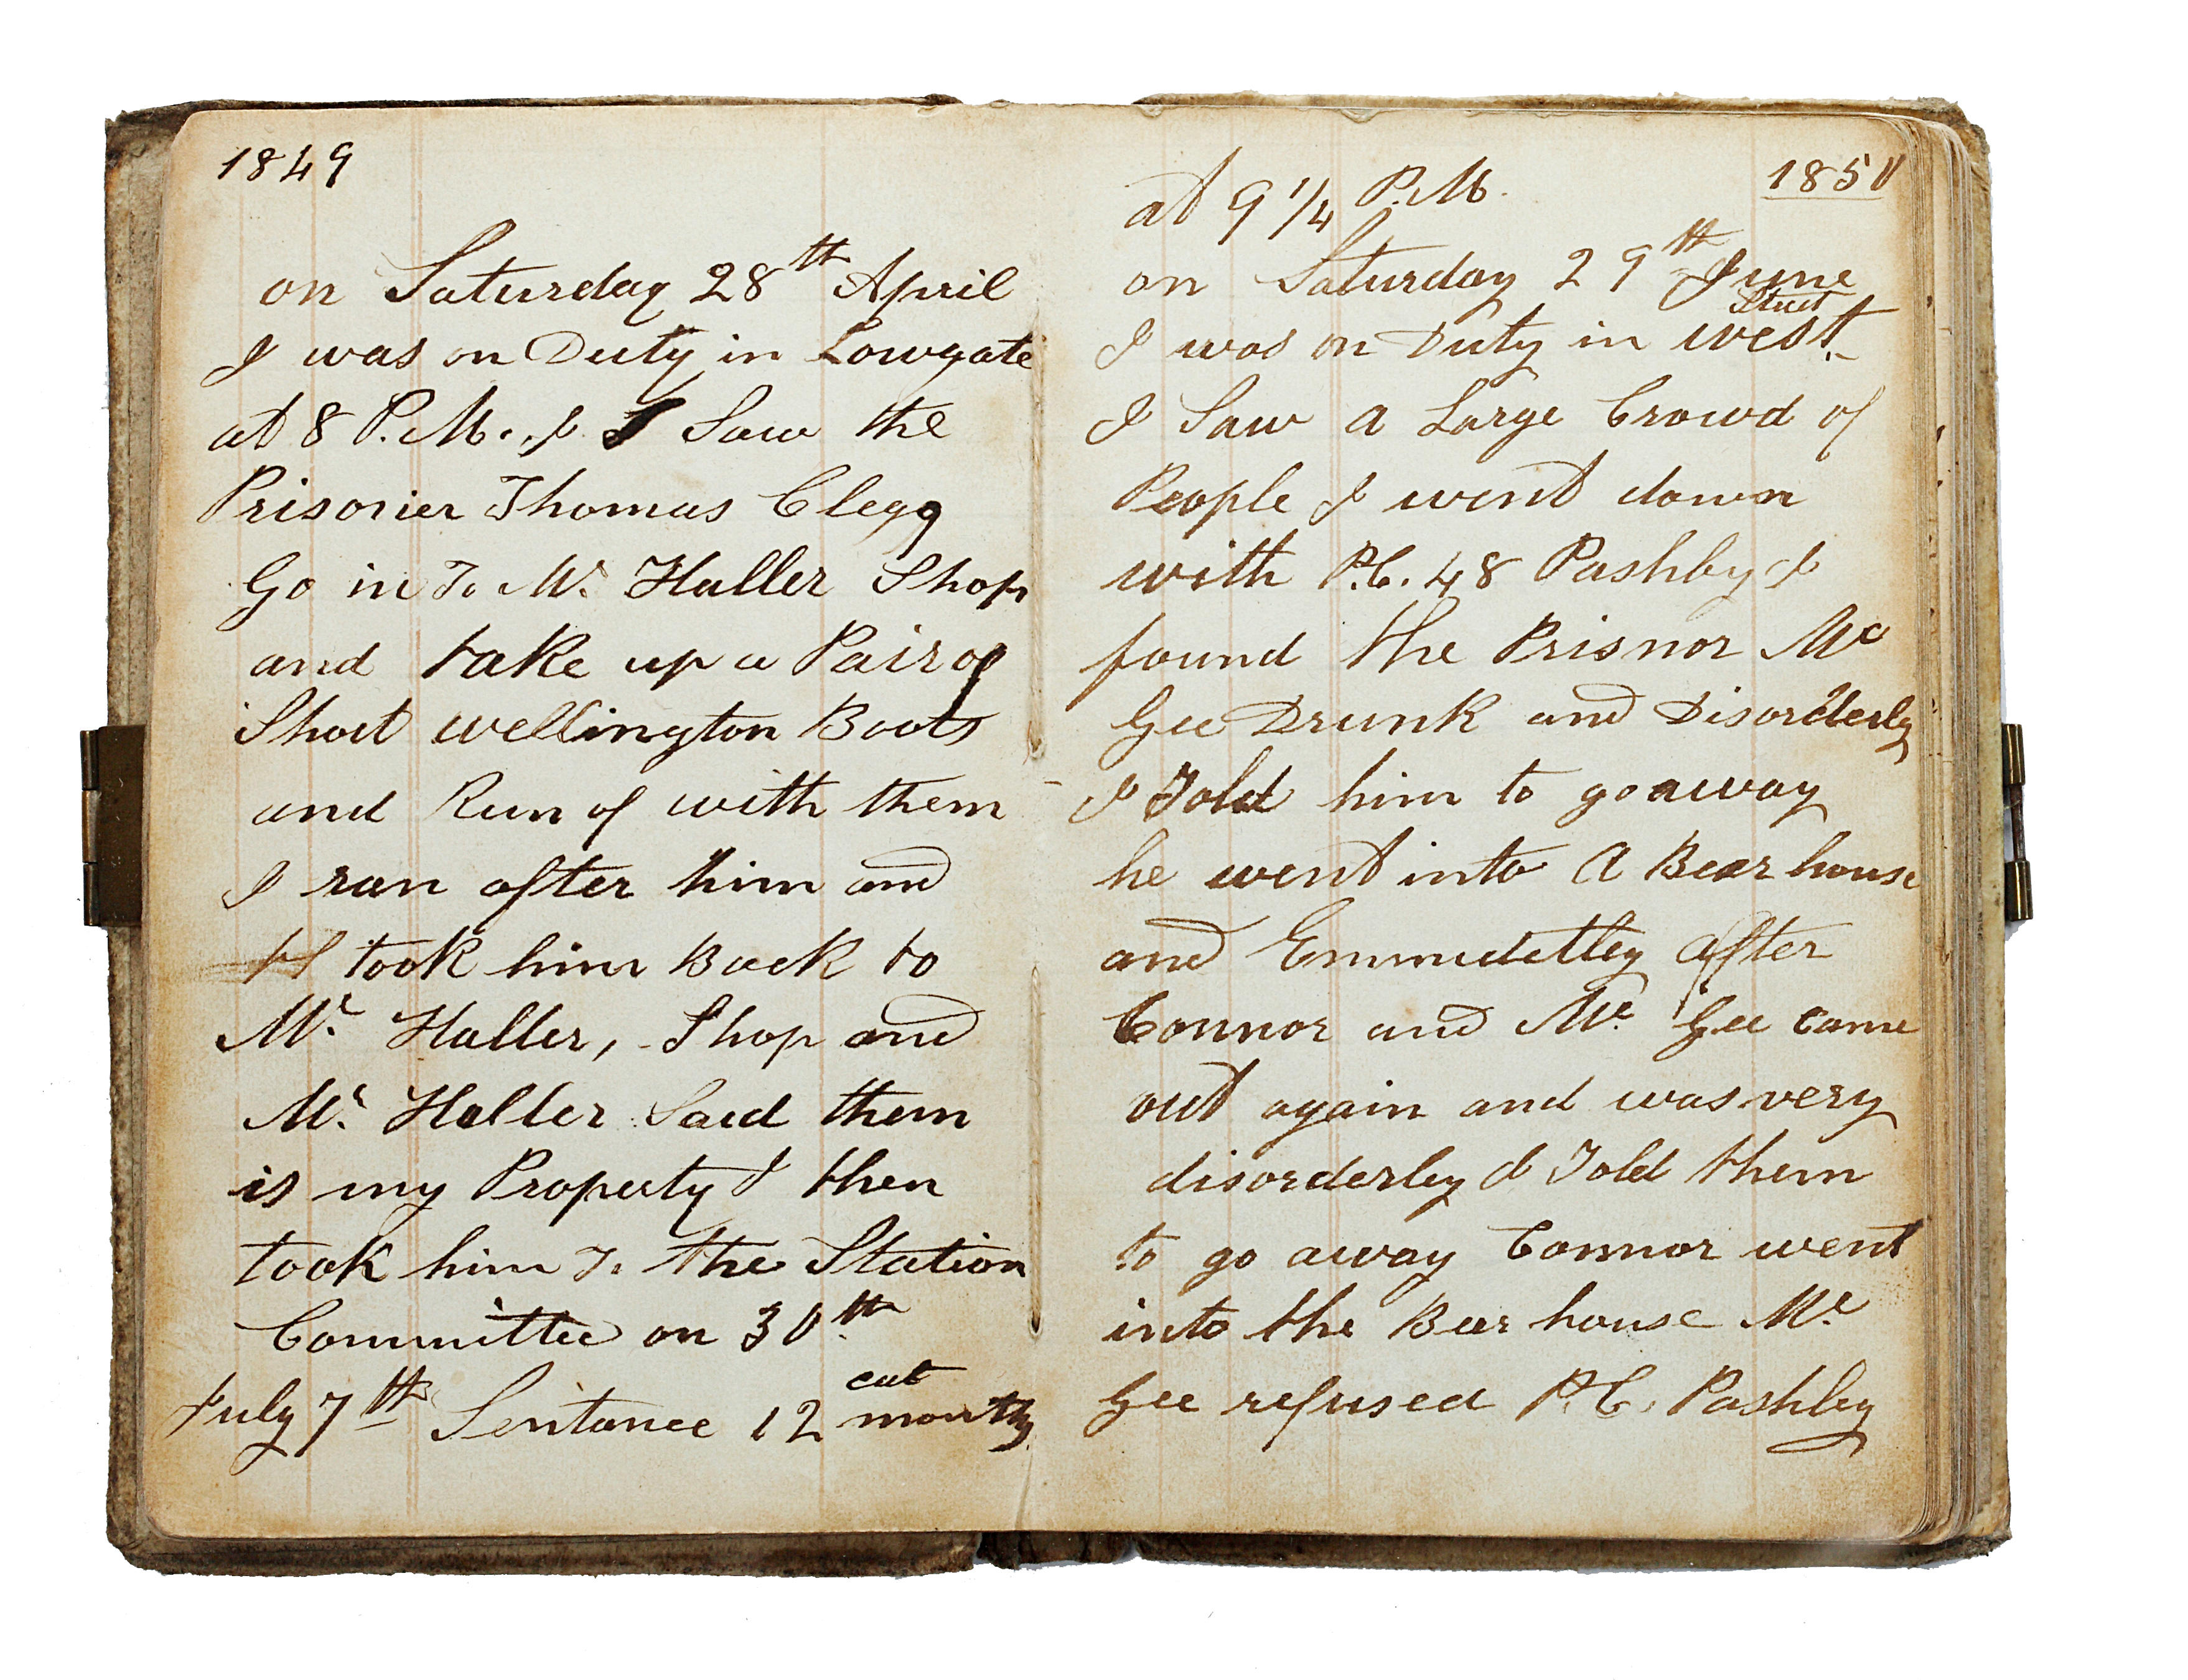 1849
on Saturday 28th April
I was on Duty in Lowgate
at 8 P.M. & I Saw the
Prisonier Thomas Clegg
Go in To Mr. Haller Shop
and take up a Pair of
Short wellington Boots
and Run of with them
I ran after him and
I took him Back to
Mr. Haller, Shop and
Mr. Haller Said them
is my Property I then
took him To the Station
Committee on 30th
July 7th Sentance 12 cal months
1850
at 9 1/4 P.M.
on Saturday 29th June
I was on Duty in west Street
I Saw a Large Crowd of
People I went down
with P.C. 48 Pashby I
found the Prisnor Mc
Gee Drunk and Disorderly
I Told him to go away
he went into A Bear house
and Emmidetley after
Connor and Mc. Gee came
out again and was very
disorderley I Told them
to go away Connor went
into the Beer house Mc
Gee refused P.C. Pashley